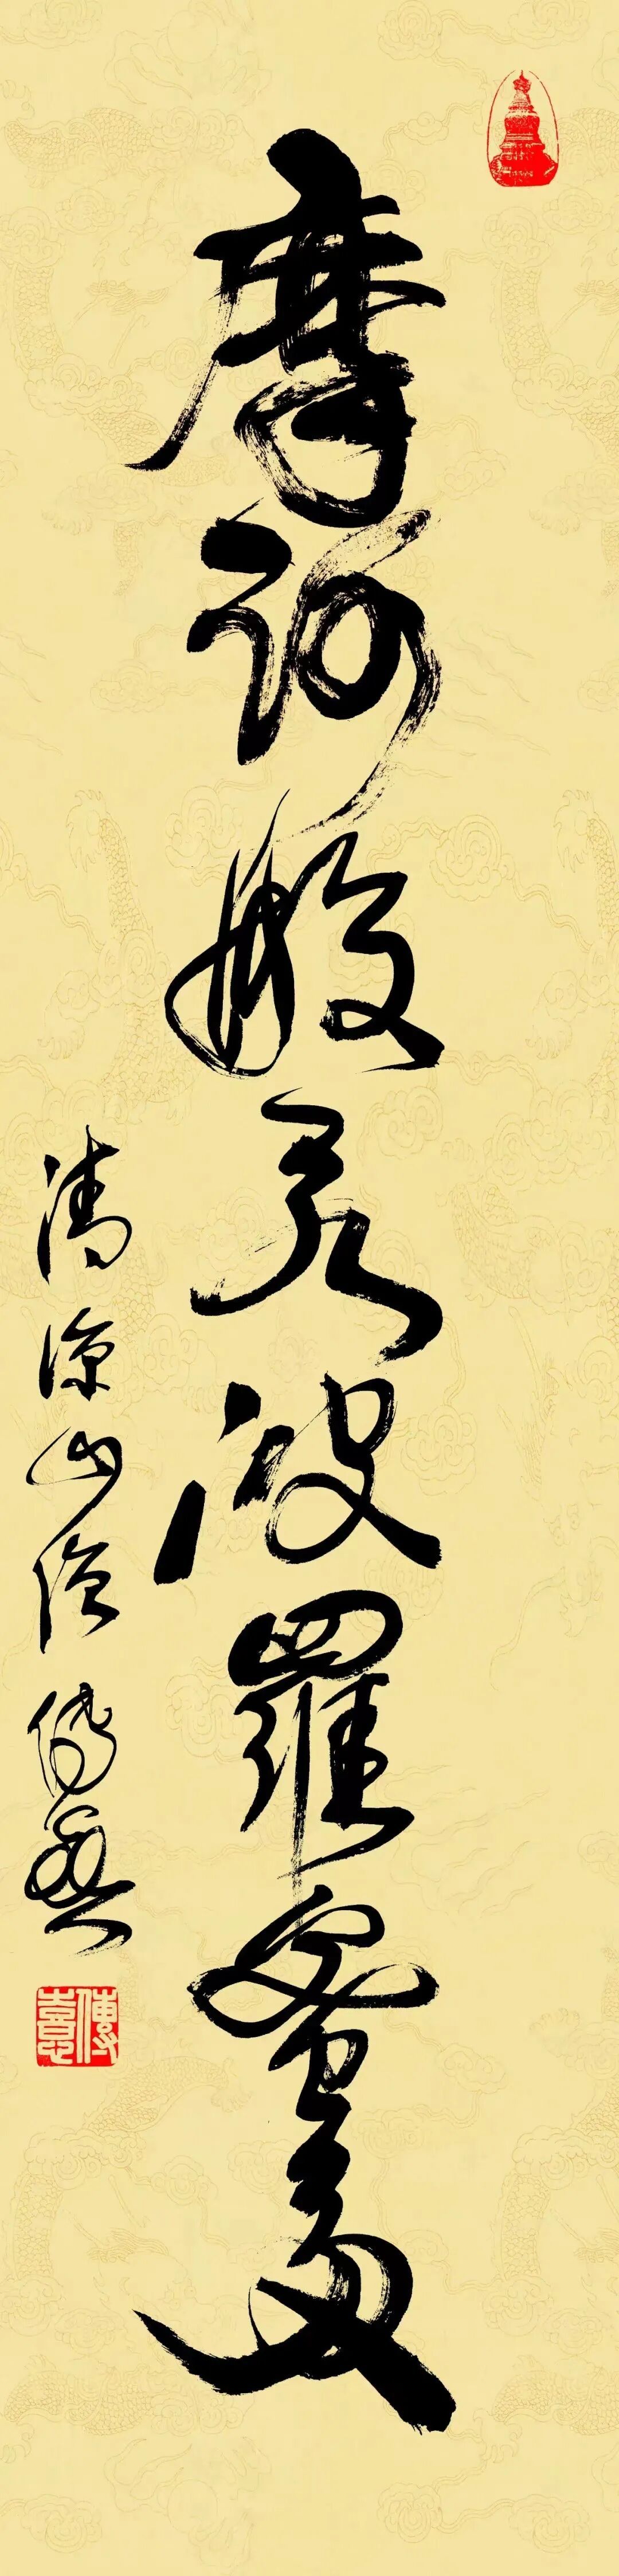 摩訶般若波羅蜜多
清涼山僧 傳喜
傳喜